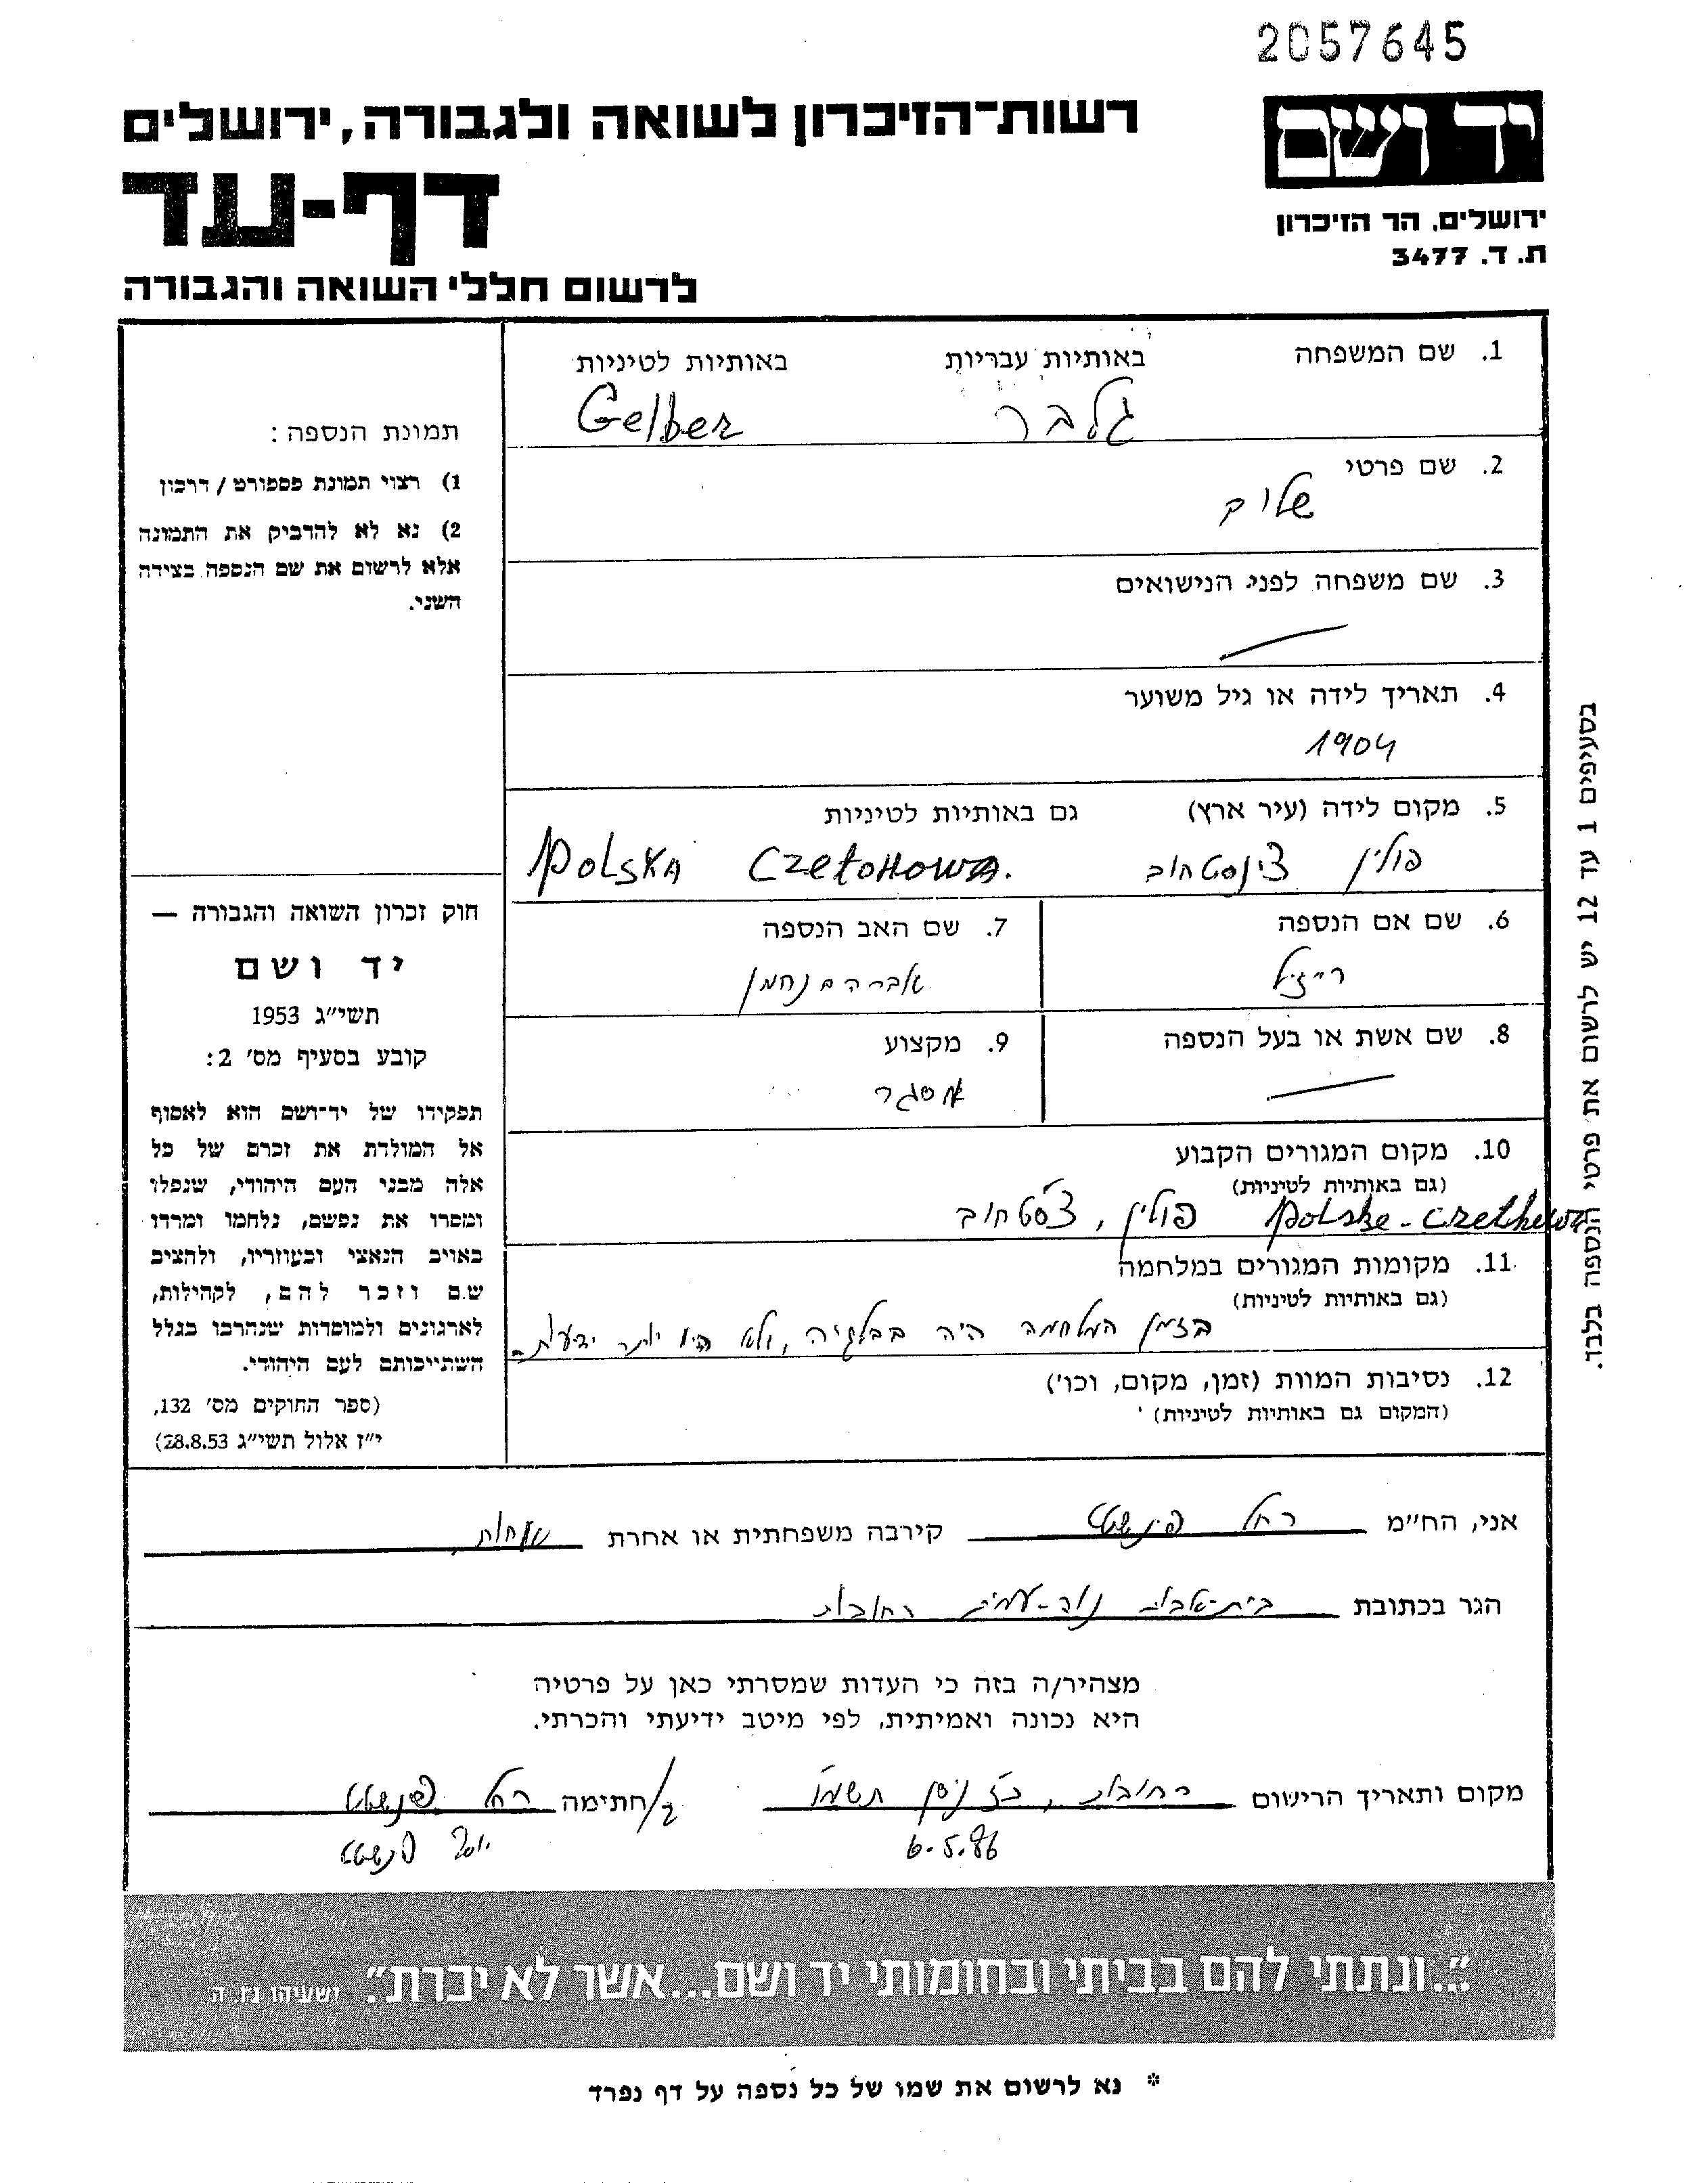 2057645
יד ושם
רשות־הזיכרון לשואה ולגבורה, ירושלים
דף-עד
ירושלים, הר הזיכרון
ת. ד. 3477
לרשום חללי השואה והגבורה
1. שם המשפחה באותיות עבריות באותיות לטיניות
גלבר Gelber
2. שם פרטי
3. שם משפחה לפני הנישואים
4. תאריך לידה או גיל משוער
1904
5. מקום לידה (עיר ארץ) גם באותיות לטיניות
פולין צ'נסטחוב Polska Czetohowa.
6. שם אם הנספה
רייזל
7. שם האב הנספה
אברהם נחמן
8. שם אשת או בעל הנספה
9. מקצוע
מסגר
10. מקום המגורים הקבוע
(גם באותיות לטיניות)
Polske - Czethowa פולין, צ'סטחוב
11. מקומות המגורים במלחמה
(גם באותיות לטיניות)
בזמן המלחמה היה בבלגיה, ולא היו יותר ידיעות.
12. נסיבות המוות (זמן, מקום, וכו')
(המקום גם באותיות לטיניות)
תמונת הנספה:
1) רצוי תמונת פספורט / דרכון
2) נא לא להדביק את התמונה
אלא לרשום את שם הנספה בצידה
השני.
חוק זכרון השואה והגבורה —
יד ושם
תשי"ג 1953
קובע בסעיף מס' 2:
תפקידו של יד־ושם הוא לאסוף
אל המולדת את זכרם של כל
אלה מבני העם היהודי, שנפלו
ומסרו את נפשם, נלחמו ומרדו
באויב הנאצי ובעוזריו, ולהציב
שם וזכר להם, לקהילות,
לארגונים ולמוסדות שנחרבו בגלל
השתייכותם לעם היהודי.
(ספר החוקים מס' 132,
י"ז אלול תשי"ג 28.8.53)
בסעיפים 1 עד 12 יש לרשום את פרטי הנספה בלבד.
אני, הח"מ רחל קירבה משפחתית או אחרת אחות
הגר בכתובת בית-אבות נוה-עמית רחובות
מצהיר/ה בזה כי העדות שמסרתי כאן על פרטיה
היא נכונה ואמיתית, לפי מיטב ידיעתי והכרתי.
מקום ותאריך הרישום רחובות, כ"ז ניסן תשמ"ו חתימה רחל
6.5.86
"...ונתתי להם בביתי ובחומותי יד ושם...אשר לא יכרת". ישעיהו נו, ה
* נא לרשום את שמו של כל נספה על דף נפרד